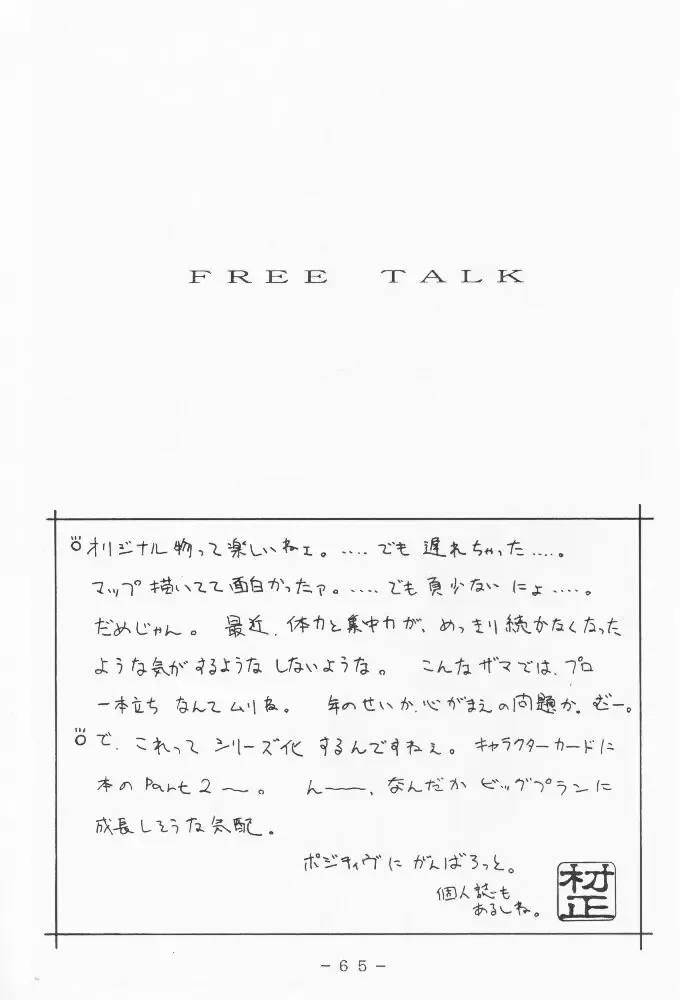 FREE TALK
オリジナル物って楽しいねェ。‥‥でも遅れちゃった‥‥。
マップ描いてて面白かったァ。‥‥でも頁少ないにょ‥‥。
だめじゃん。 最近、体力と集中力が、めっきり続かなくなった
ような気がするようなしないような。 こんなザマでは、プロ
一本立ちなんてムリね。 年のせいか、心がまえの問題か。むー。
で、これってシリーズ化するんですねぇ。キャラクターカードに
本のPart2〜。 んー、なんだかビッグプランに
成長しそうな気配。
ポジティヴにがんばろっと。
個人誌も
あるしね。
村正
-65-